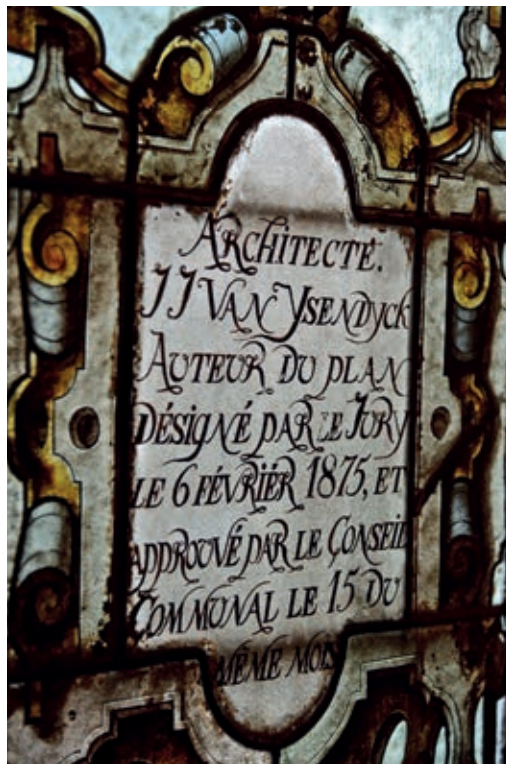 ARCHITECTE.
JJ VAN YSENDYCK
AUTEUR DU PLAN
DÉSIGNÉ PAR LE JURY
LE 6 FÉVRIER 1875, ET
APPROUVÉ PAR LE CONSEIL
COMMUNAL LE 15 DU
MÊME MOIS